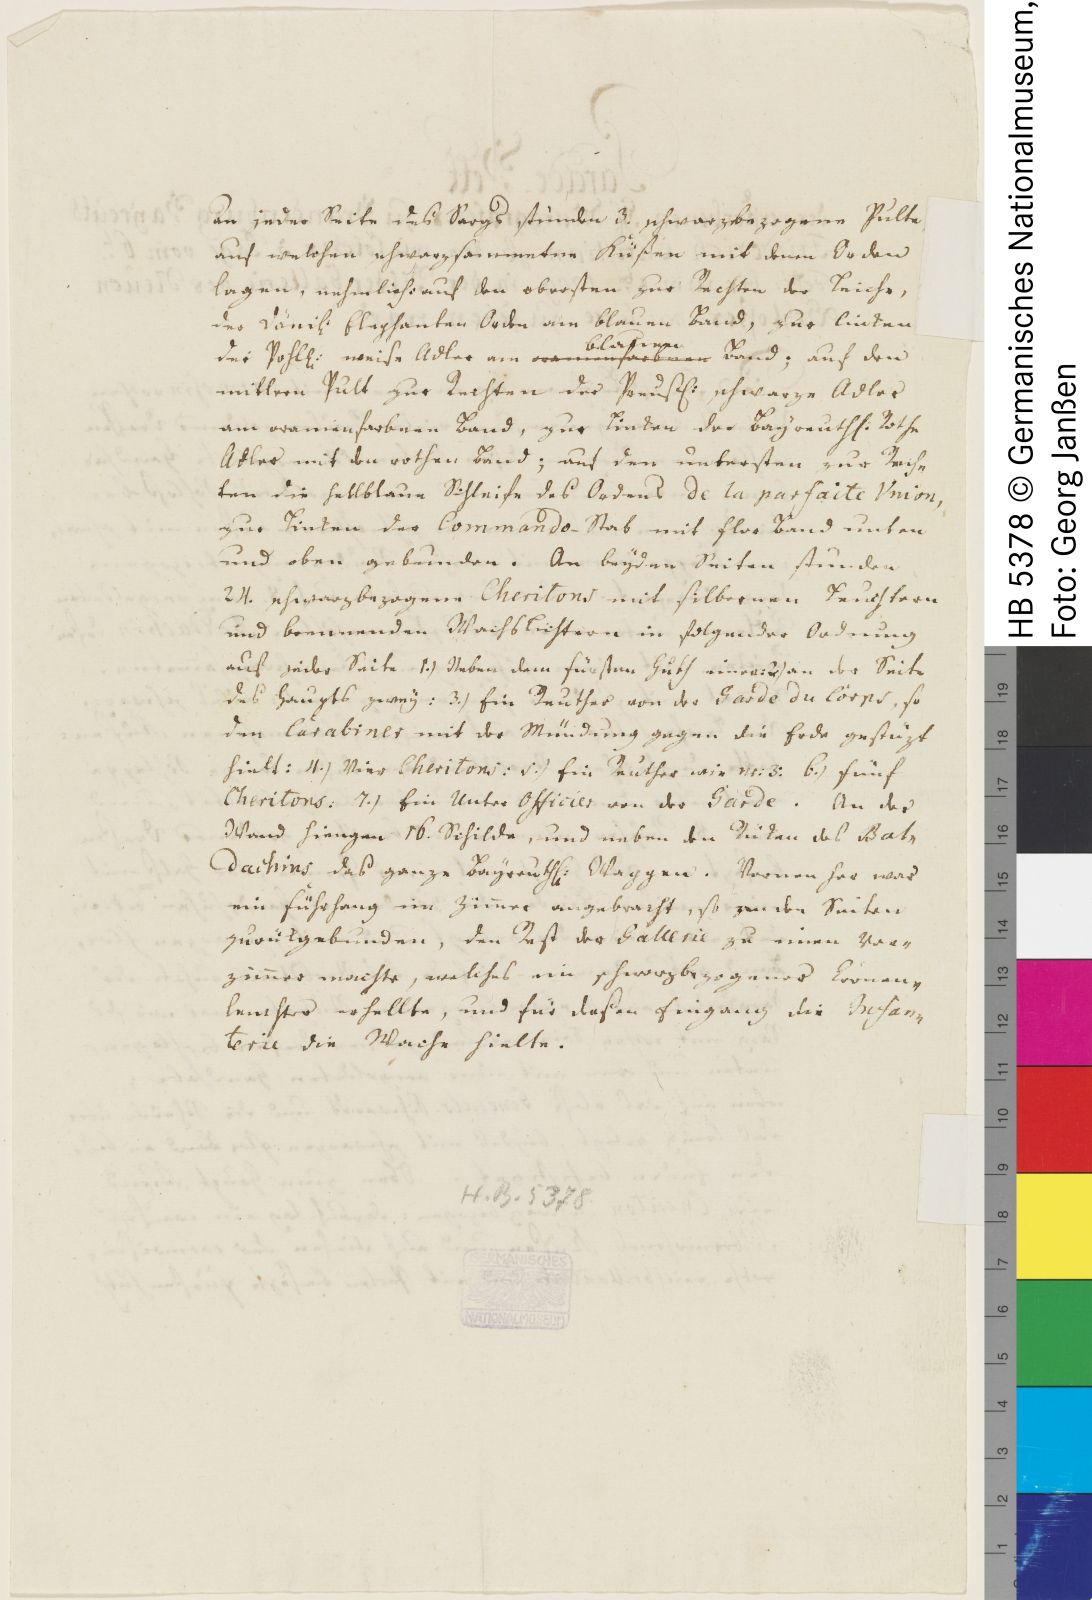 An jeder Seite des Sargs stunden 3. schwarzbezogene Pulte
auf welchen schwarzsammetne Küßen mit denen Orden
lagen, nehmlich: auf den obersten zur Rechten der Leiche,
der Dänis: Elephanten Orden am blauen Band, zur Linken
der Pohls: weise Adler am oraniensarbnen blauen Band; auf den
mittlern Pult zur Rechten der Preuss: schwarze Adler
am oranienfarbnen Band, zur Linken der Bayreuths: Rothe
Adler mit den rothen Band; auf den untersten zur Rech„
ten die hellblaue Schleife des Ordens de la parfaite Union,
zur Linken der Commando-Stab mit flor Band unten
und oben gebunden. An beyden Seiten stunden
24. schwarzbezogene Cheritons mit silbernen Leuchtern
und brennenden Wachslichtern in folgender Ordnung
auf jeder Seite 1.) Neben dem fürsten Huth einer: 2.) an der Seite
des Haupts zwey: 3.) Ein Reuther von der Garde du Corps, so
den Carabiner mit der Mündung gegen die Erde gestüzt
hielt: 4.) Vier Cheritons: 5.) Ein Reuther wie nr: 3. 6.) fünf
Cheritons: 7.) Ein Unter Officier von der Garde. An der
Wand hiengen 16. Schilde, und neben den Rüken des Bal„
dachins das ganze Bayreuths: Wappen. Vornen her war
ein fürhang im Zimer angebracht, so zu den Seiten
zurükgebunden, den Rest der Gallerie zu einen Vor„
zimer machte, welches ein schwarzbezogener Cronen„
leuchter erhellte, und für deßen Eingang die Infan„
terie die Wache hielte.
H.B. 5378
GERMANISCHES
NATIONALMUSEUM
HB 5378 © Germanisches Nationalmuseum,
Foto: Georg Janßen
19
18
17
16
15
14
13
12
11
10
9
8
7
6
5
4
3
2
1